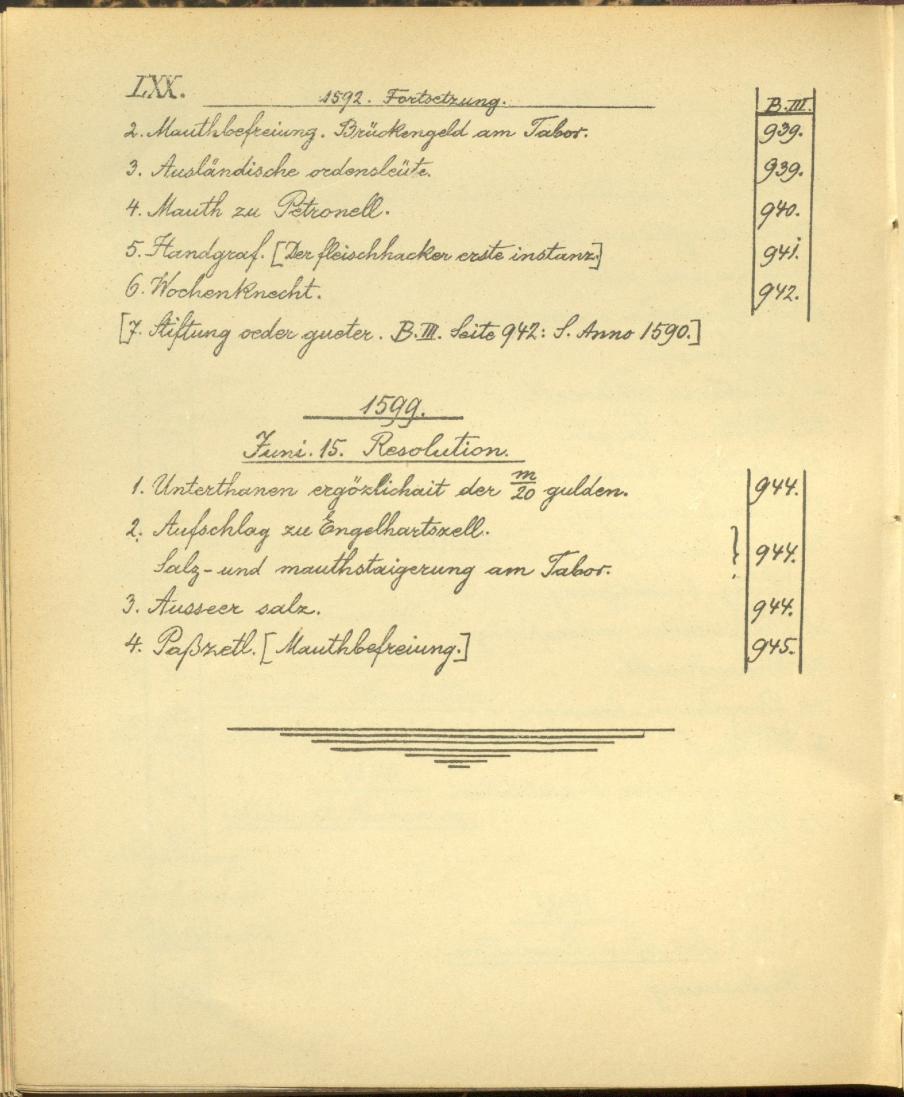 LXX. 1592. Fortsetzung. B.III.
2. Mauthbefreiung. Brückengeld am Tabor. 939.
3. Ausländische ordensleüte. 939.
4. Mauth zu Petronell. 940.
5. Handgraf. [Der fleischhacker erste instanz] 941.
6. Wochenknecht. 942.
[7. Stiftung oeder gueter. B.III. Seite 942: S. Anno 1590.]
1599.
Juni. 15. Resolution.
1. Unterthanen ergözlichait der m/20 gulden. 944.
2. Aufschlag zu Engelhartszell.
Salz- und mauthstaigerung am Tabor. } 944.
3. Ausseer salz. 944.
4. Paßzetl. [Mauthbefreiung.] 945.